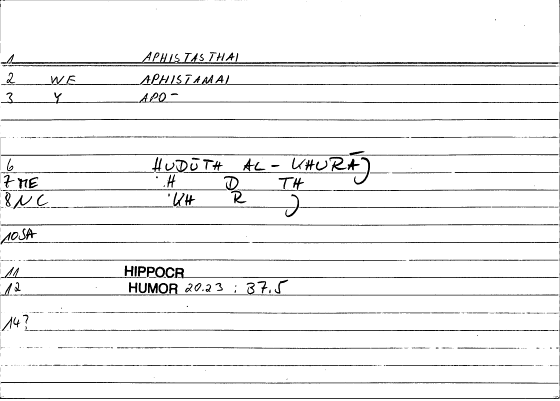 1 APHISTASTHAI
2 WE APHISTAMAI
3 Y APO-
6 HUDŪTH AL-KHURĀJ
7 ME H D TH
8 NC KH R J
10 SA
11 HIPPOCR
12 HUMOR 20.23 : 37.5
14?